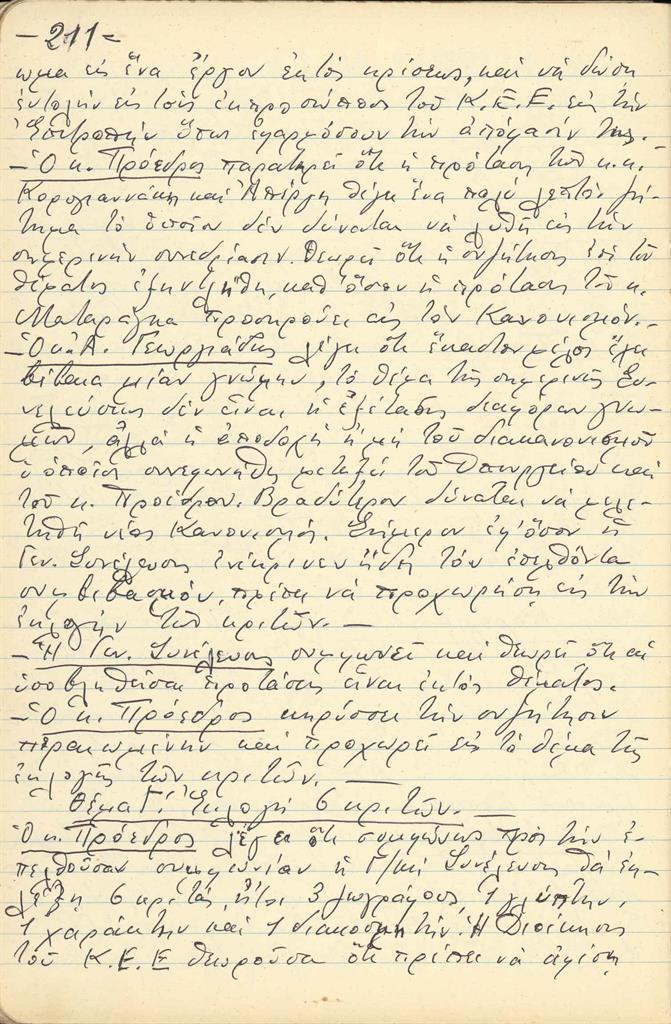 -211-
ωμα εἰς ἕνα ἔργον ἐκτὸς κρίσεως, καὶ νὰ δώση
ἐντολὴν εἰς τοὺς ἐκπροσώπους τοῦ Κ.Ε.Ε. εἰς τὴν
Ἐπιτροπὴν ὅπως ἐφαρμόσουν τὴν ἀπόφασίν της.-
-Ὁ κ. Πρόεδρος παρατηρεῖ ὅτι ἡ πρότασις τῶν κ.κ.
Καρογιαννάκη καὶ Ἀπέργη θίγει ἕνα πολὺ λεπτὸν ζή-
τημα τὸ ὁποῖον δὲν δύναται νὰ λυθῆ εἰς τὴν
σημερινὴν συνεδρίασιν. Θεωρεῖ ὅτι ἡ συζήτησις ἐπὶ τοῦ
θέματος ἐξηντλήθη, καθ' ὅσον ἡ πρότασις τοῦ κ.
Ματαράγκα προσκρούει εἰς τὸν Κανονισμόν.-
-Ὁ κ. Α. Γεωργιάδης λέγει ὅτι ἕκαστον μέλος ἔχει
βέβαια μίαν γνώμην, τὸ θέμα τῆς σημερινῆς Συ-
νελεύσεως δὲν εἶναι ἡ ἐξέτασις διαφόρων γνω-
μῶν, ἀλλὰ ἡ ἀποδοχὴ ἢ μὴ τοῦ διακανονισμοῦ
ὁ ὁποῖος συνεφωνήθη μεταξὺ τοῦ Ὑπουργείου καὶ
τοῦ κ. Προέδρου. Βραδύτερον δύναται νὰ μελε-
τηθῆ νέος Κανονισμός. Σήμερον ἐφ' ὅσον ἡ
Γεν. Συνέλευσις ἐνέκρινεν ἤδη τὸν ἐπελθόντα
συμβιβασμόν, πρέπει νὰ προχωρήση εἰς τὴν
ἐκλογὴν τῶν κριτῶν.-
-Ἡ Γεν. Συνέλευσις συμφωνεῖ καὶ θεωρεῖ ὅτι αἱ
ὑποβληθεῖσαι προτάσεις εἶναι ἐκτὸς θέματος.
-Ὁ κ. Πρόεδρος κηρύσσει τὴν συζήτησιν
περαιωμένην καὶ προχωρεῖ εἰς τὸ θέμα τῆς
ἐκλογῆς τῶν κριτῶν.-
Θέμα Γ'. Ἐκλογὴ 6 κριτῶν.-
Ὁ κ. Πρόεδρος λέγει ὅτι συμφώνως πρὸς τὴν ἐ-
πελθοῦσαν συμφωνίαν ἡ Γ/κὴ Συνέλευσις θὰ ἐκ-
λέξη 6 κριτάς, ἤτοι 3 ζωγράφους, 1 γλύπτην,
1 χαράκτην καὶ 1 διακοσμητήν. Ἡ Διοίκησις
τοῦ Κ.Ε.Ε θεωροῦσα ὅτι πρέπει νὰ ἀφίση